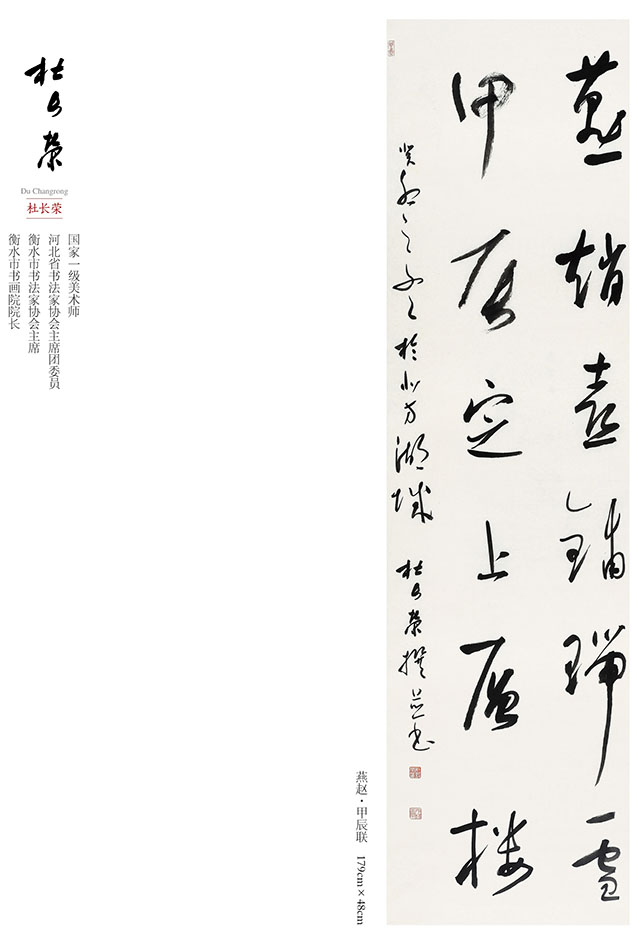 杜长荣
Du Changrong
杜长荣
国家一级美术师
河北省书法家协会主席团委员
衡水市书法家协会主席
衡水市书画院院长
燕趙喜鋪瑞雪
甲辰定上層楼
癸卯之冬於北方湖城 杜长荣撰並书
燕赵·甲辰联 179cm×48cm